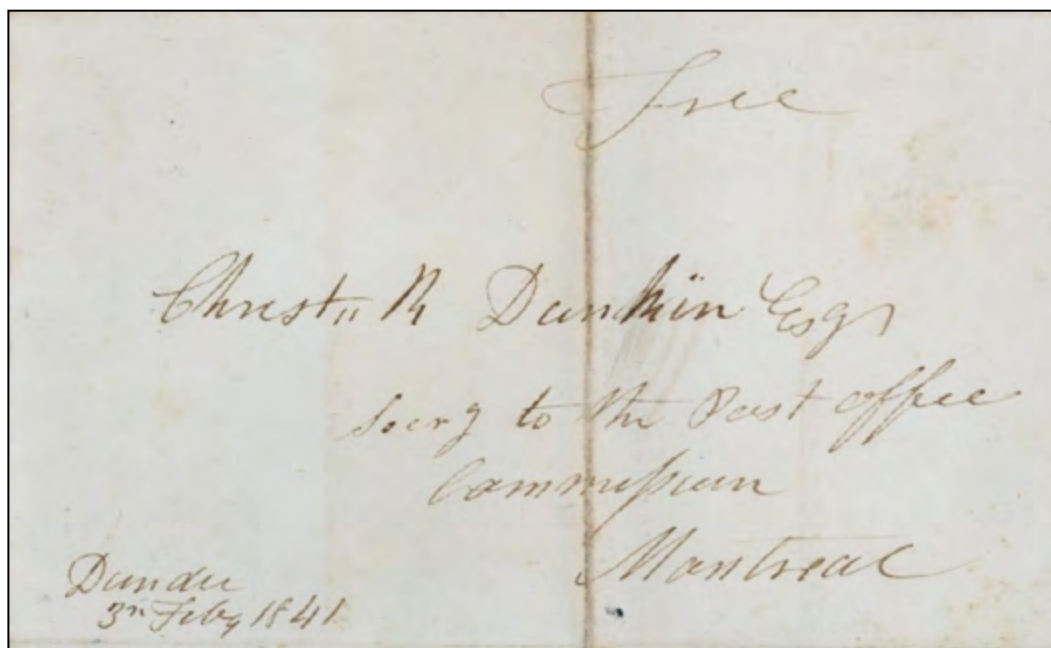 Free
Christr R Dunkin Esqr
Secry to the Post office
Commission
Montreal
Dundee
3rd Feby 1841